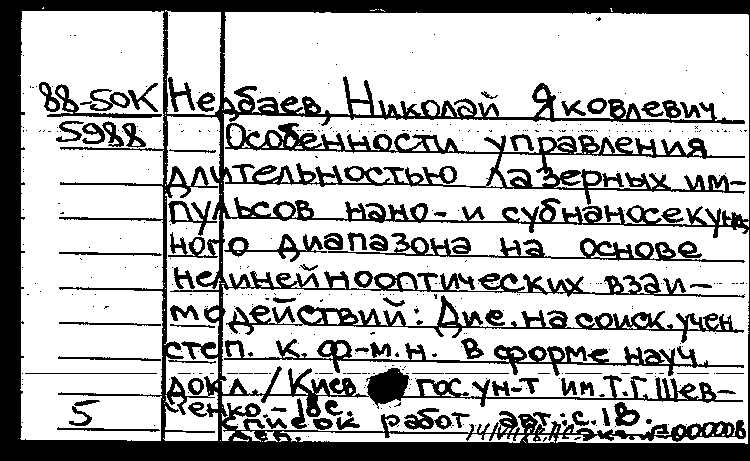 88-50К Недбаев, Николай Яковлевич.
5988 Особенности управления
длительностью лазерных им-
пульсов нано- и субнаносекунд
ного диапазона на основе
нелинейнооптических взаи-
модействий: Дис. на соиск. учен
степ. к. ф-м.н. в форме науч.
докл./ Киев гос. ун-т им. Т.Г. Шев-
ченко. - 18с.
5 список работ авт.: с.18.
деп. экз. №000008